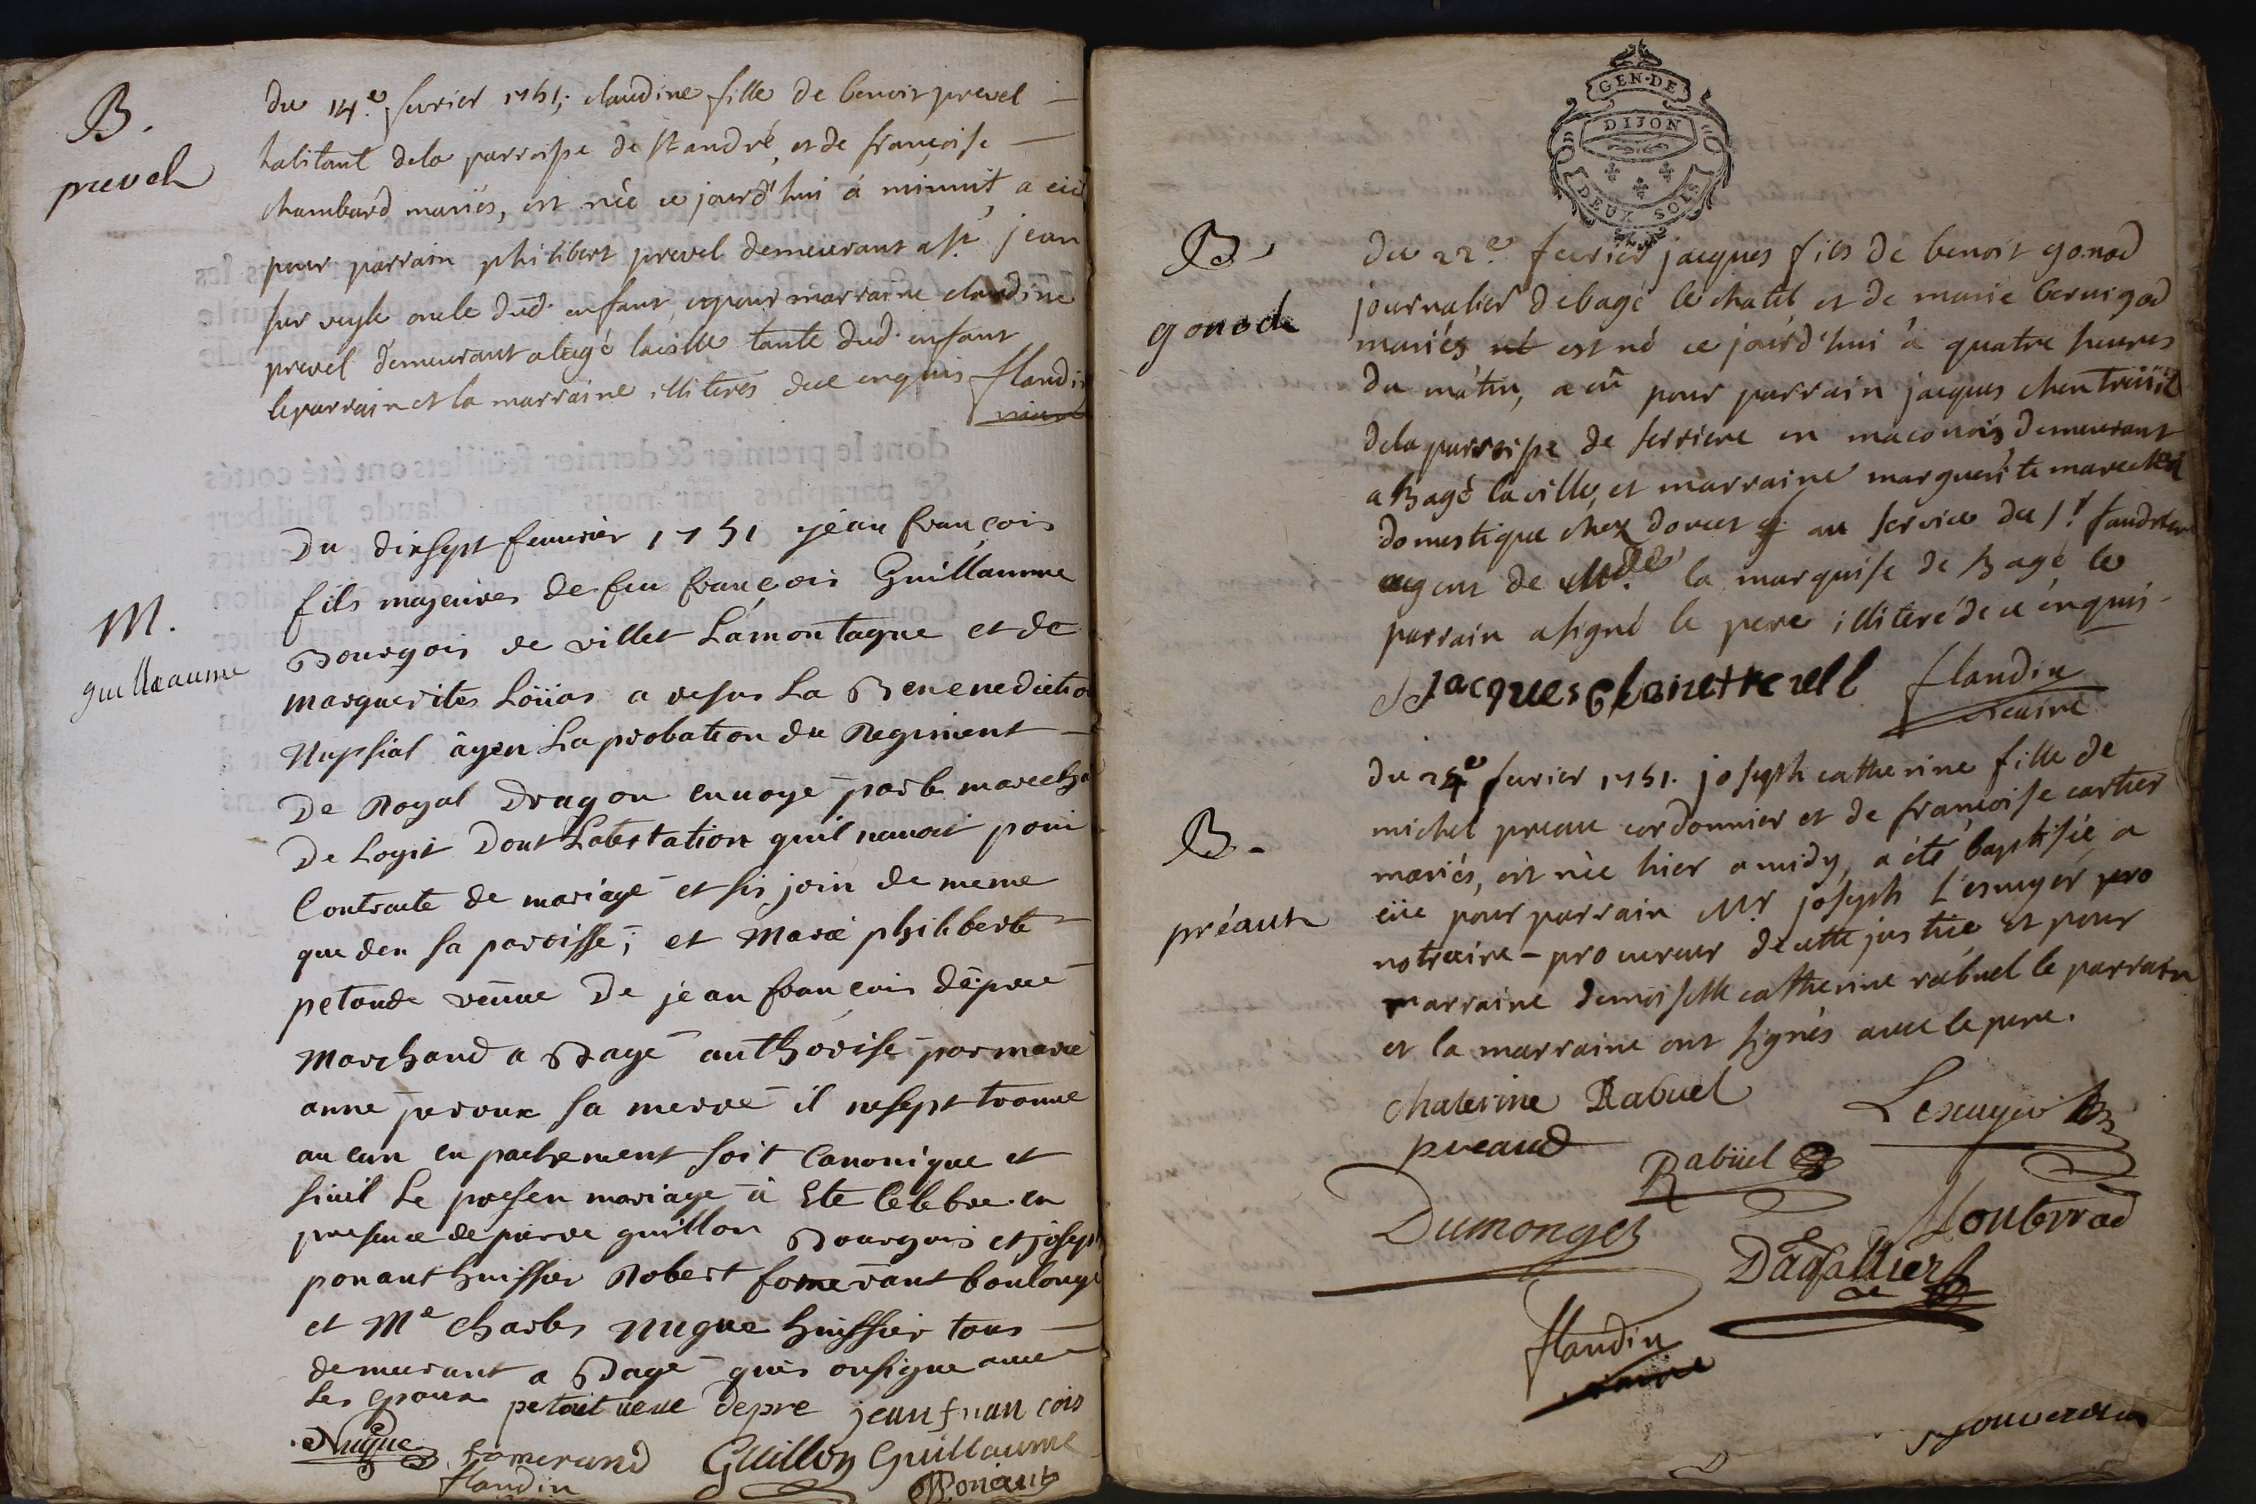 B.
prevel
du 14.e fevrier 1751; claudine fille de benoit prevel
habitant dela parroisse de st andré, et de françoise
chambard mariés, est née ce jourd'hui á minuit, a eüe
pour parrain philibert prevel demeurant a st. jean
sur veyle oncle dud. enfant, et pour marraine claudine
prevel demeurant a bagé la ville tante dud. enfant
le parrain et la marraine illiterés de ce enquis flandin
vicaire
M.
guilleaume
Du dixsept feuvrier 1751 jéan francois
fils majeures de feu francois Guillaumme
Bourgois de villet Lamontagne et de
marguerites Loüas a resus La Benenediction
Nupsial âyen La probation du Regiment
De Royal Dragon envoye par le marechal
De Logit Dont Latestation quil navoit poin
Contracte de mariage et sis join de meme
que den sa paroisse; et marie philiberte
petoude veuve De jean francois dépré
marchand a Bagé authorise par marie
anne peroux sa merre il nesept trouve
aucun enpachement soit Canonique et
sivil Le presen mariage à Ete Celebre en
presence de pierre guillon Bourgois et joseph
ponant huissier Robert fomerant boulonge
et Me Charles nugue huissier tous
demeurant a Bagé quis onsigne avec
Les epoux petout veue depre jean fran cois
Nugue fomerand Guillon Guillaume
flandin Ponant
GEN·DE
DIJON
DEUX SOLS
B
gonod
du 22.e fevrier jacques fils de benoit gonod
journalier de bagé le chatel, et de marie bernigod
mariés né est né ce jourd'hui á quatre heures
du matin, a eü pour parrain jacques chentreüil
dela parroisse de serriere en maconois demeurant
a Bagé la ville, et marraine marguerite marechal
domestique chez au service du sr.
agent de Mde. la marquise de Bagé le
parrain a signé le pere illiteré de ce enquis.
jacques flandin
vicaire
B.
préaut
du 24e fevrier 1751. joseph catherine fille de
michel preau cordonnier et de françoise cartier
mariés, est née hier a midy, a été baptisée, a
eüe pour parrain Mr joseph Lescuyer pro
notraire - procureur de cette justice et pour
marraine demoiselle catherine rabuel le parrain
et la marraine ont signés avec le pere.
chaterine Rabuel Lescuyer
preaud Rabüel
Dumonget Monterrad
Dagallier
flandin
vicaire